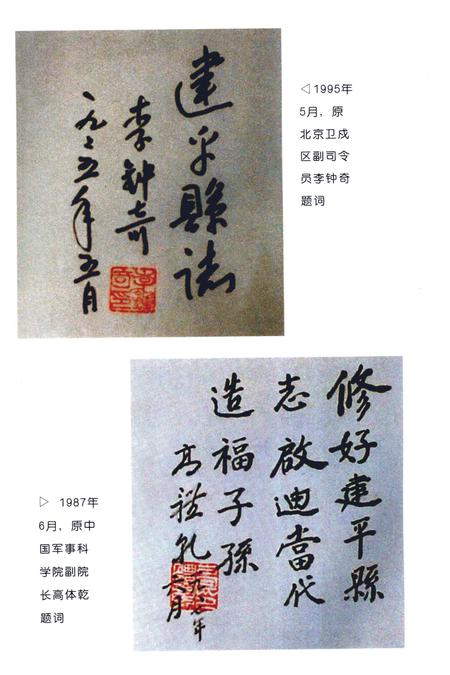 建平縣誌
李钟奇
一九九五年五月
◁1995年
5月，原
北京卫戍
区副司令
员李钟奇
题词
修好建平縣
志啟迪當代
造福子孫
高體乾
一九八七年
六月
▷ 1987年
6月，原中
国军事科
学院副院
长高体乾
题词